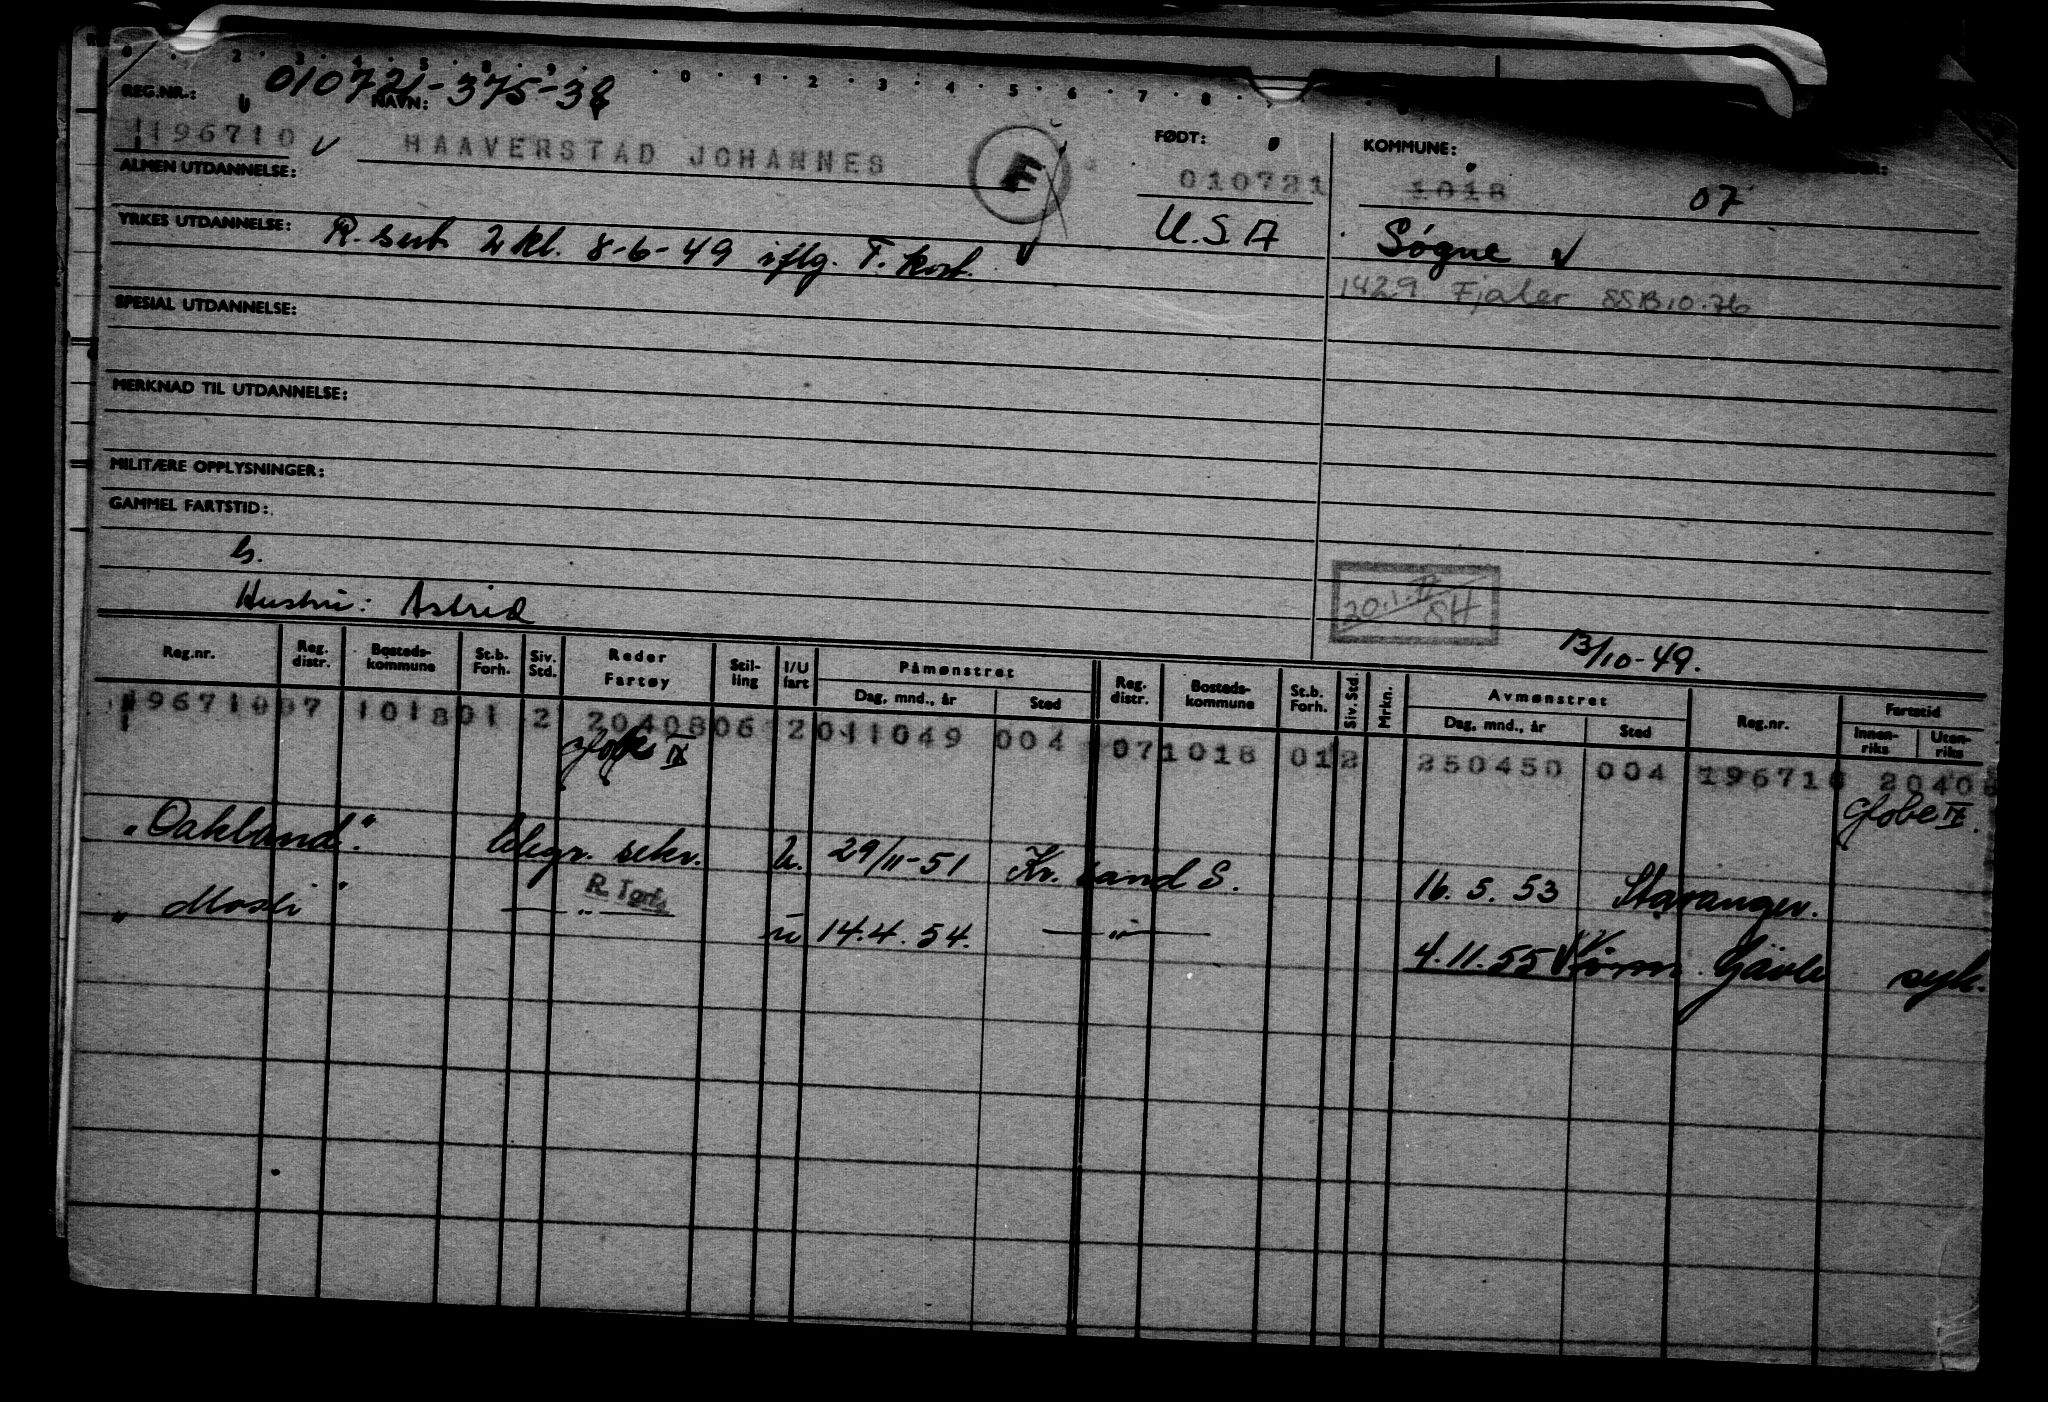 REG.NR.: 010721-375-38 NAVN: FØDT: KOMMUNE:
196710 HAAVERSTAD JOHANNES F 010721 1018 07
ALMEN UTDANNELSE: U.S.A Søgne
YRKES UTDANNELSE: R. sert. 2 kl. 8-6-49 iflg. F. kort.
1429 Fjaler SSB 10.76
SPESIAL UTDANNELSE:
MERKNAD TIL UTDANNELSE:
MILITÆRE OPPLYSNINGER:
GAMMEL FARTSTID:
b.
Hustru: Astrid
20.1.
SH
13/10-49.
Reg.nr. Reg. distr. Bosteds-kommune St.b. Forh. Siv. Std. Reder Fartøy Stil-ling I/U fart Påmønstret Reg. distr. Bosteds-kommune St.b. Forh. Siv. Std. Mrkn. Avmønstret Reg.nr. Fartstid
Dag, mnd., år Sted Dag, mnd., år Sted Innen-riks Uten-riks
196710 07 1018 01 2 20408 06 2 011049 004 07 1018 01 2 250450 004 196710 20408
Globe IX Globe IX.
"Oakland." telegr. sekr. u. 29/11-51 Kr.sand S. 16.5.53 Stavanger.
"Mosli" — " — u 14.4.54. — " — 4.11.55 Gävle syk.